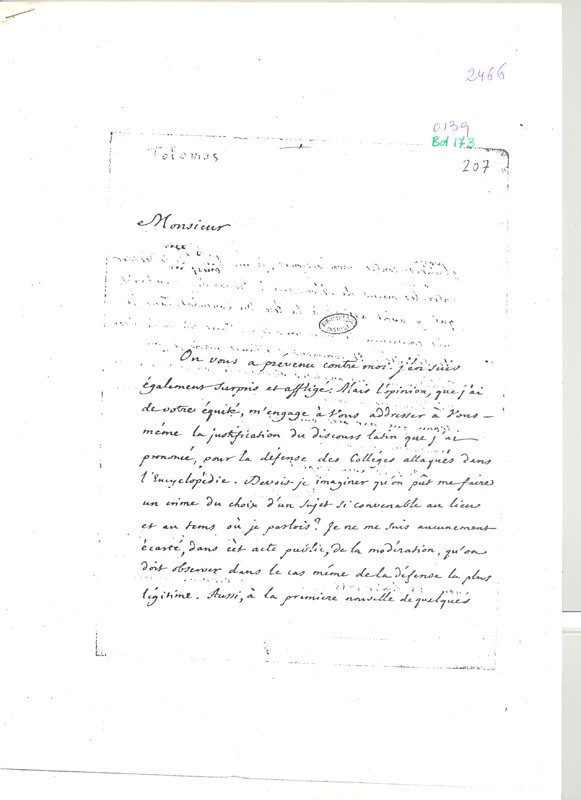 2466
0139
Bol 173
Tolomas
207
Monsieur
On vous a prévenu contre moi. j'en suis
également surpris et affligé: Mais l'opinion, que j'ai
de votre équité, m'engage à vous addresser à vous-
même la justification du discours latin que j'ai
prononcé, pour la défense des Collèges attaqués dans
l'Encyclopédie. Devois-je imaginer qu'on pût me faire
un crime du choix d'un sujet si convenable au lieu
et au tems où je parlois? Je ne me suis aucunement
écarté, dans cèt acte public, de la modération, qu'on
doit observer dans le cas même de la défense la plus
légitime. Aussi, à la premiere nouvelle de quelqués